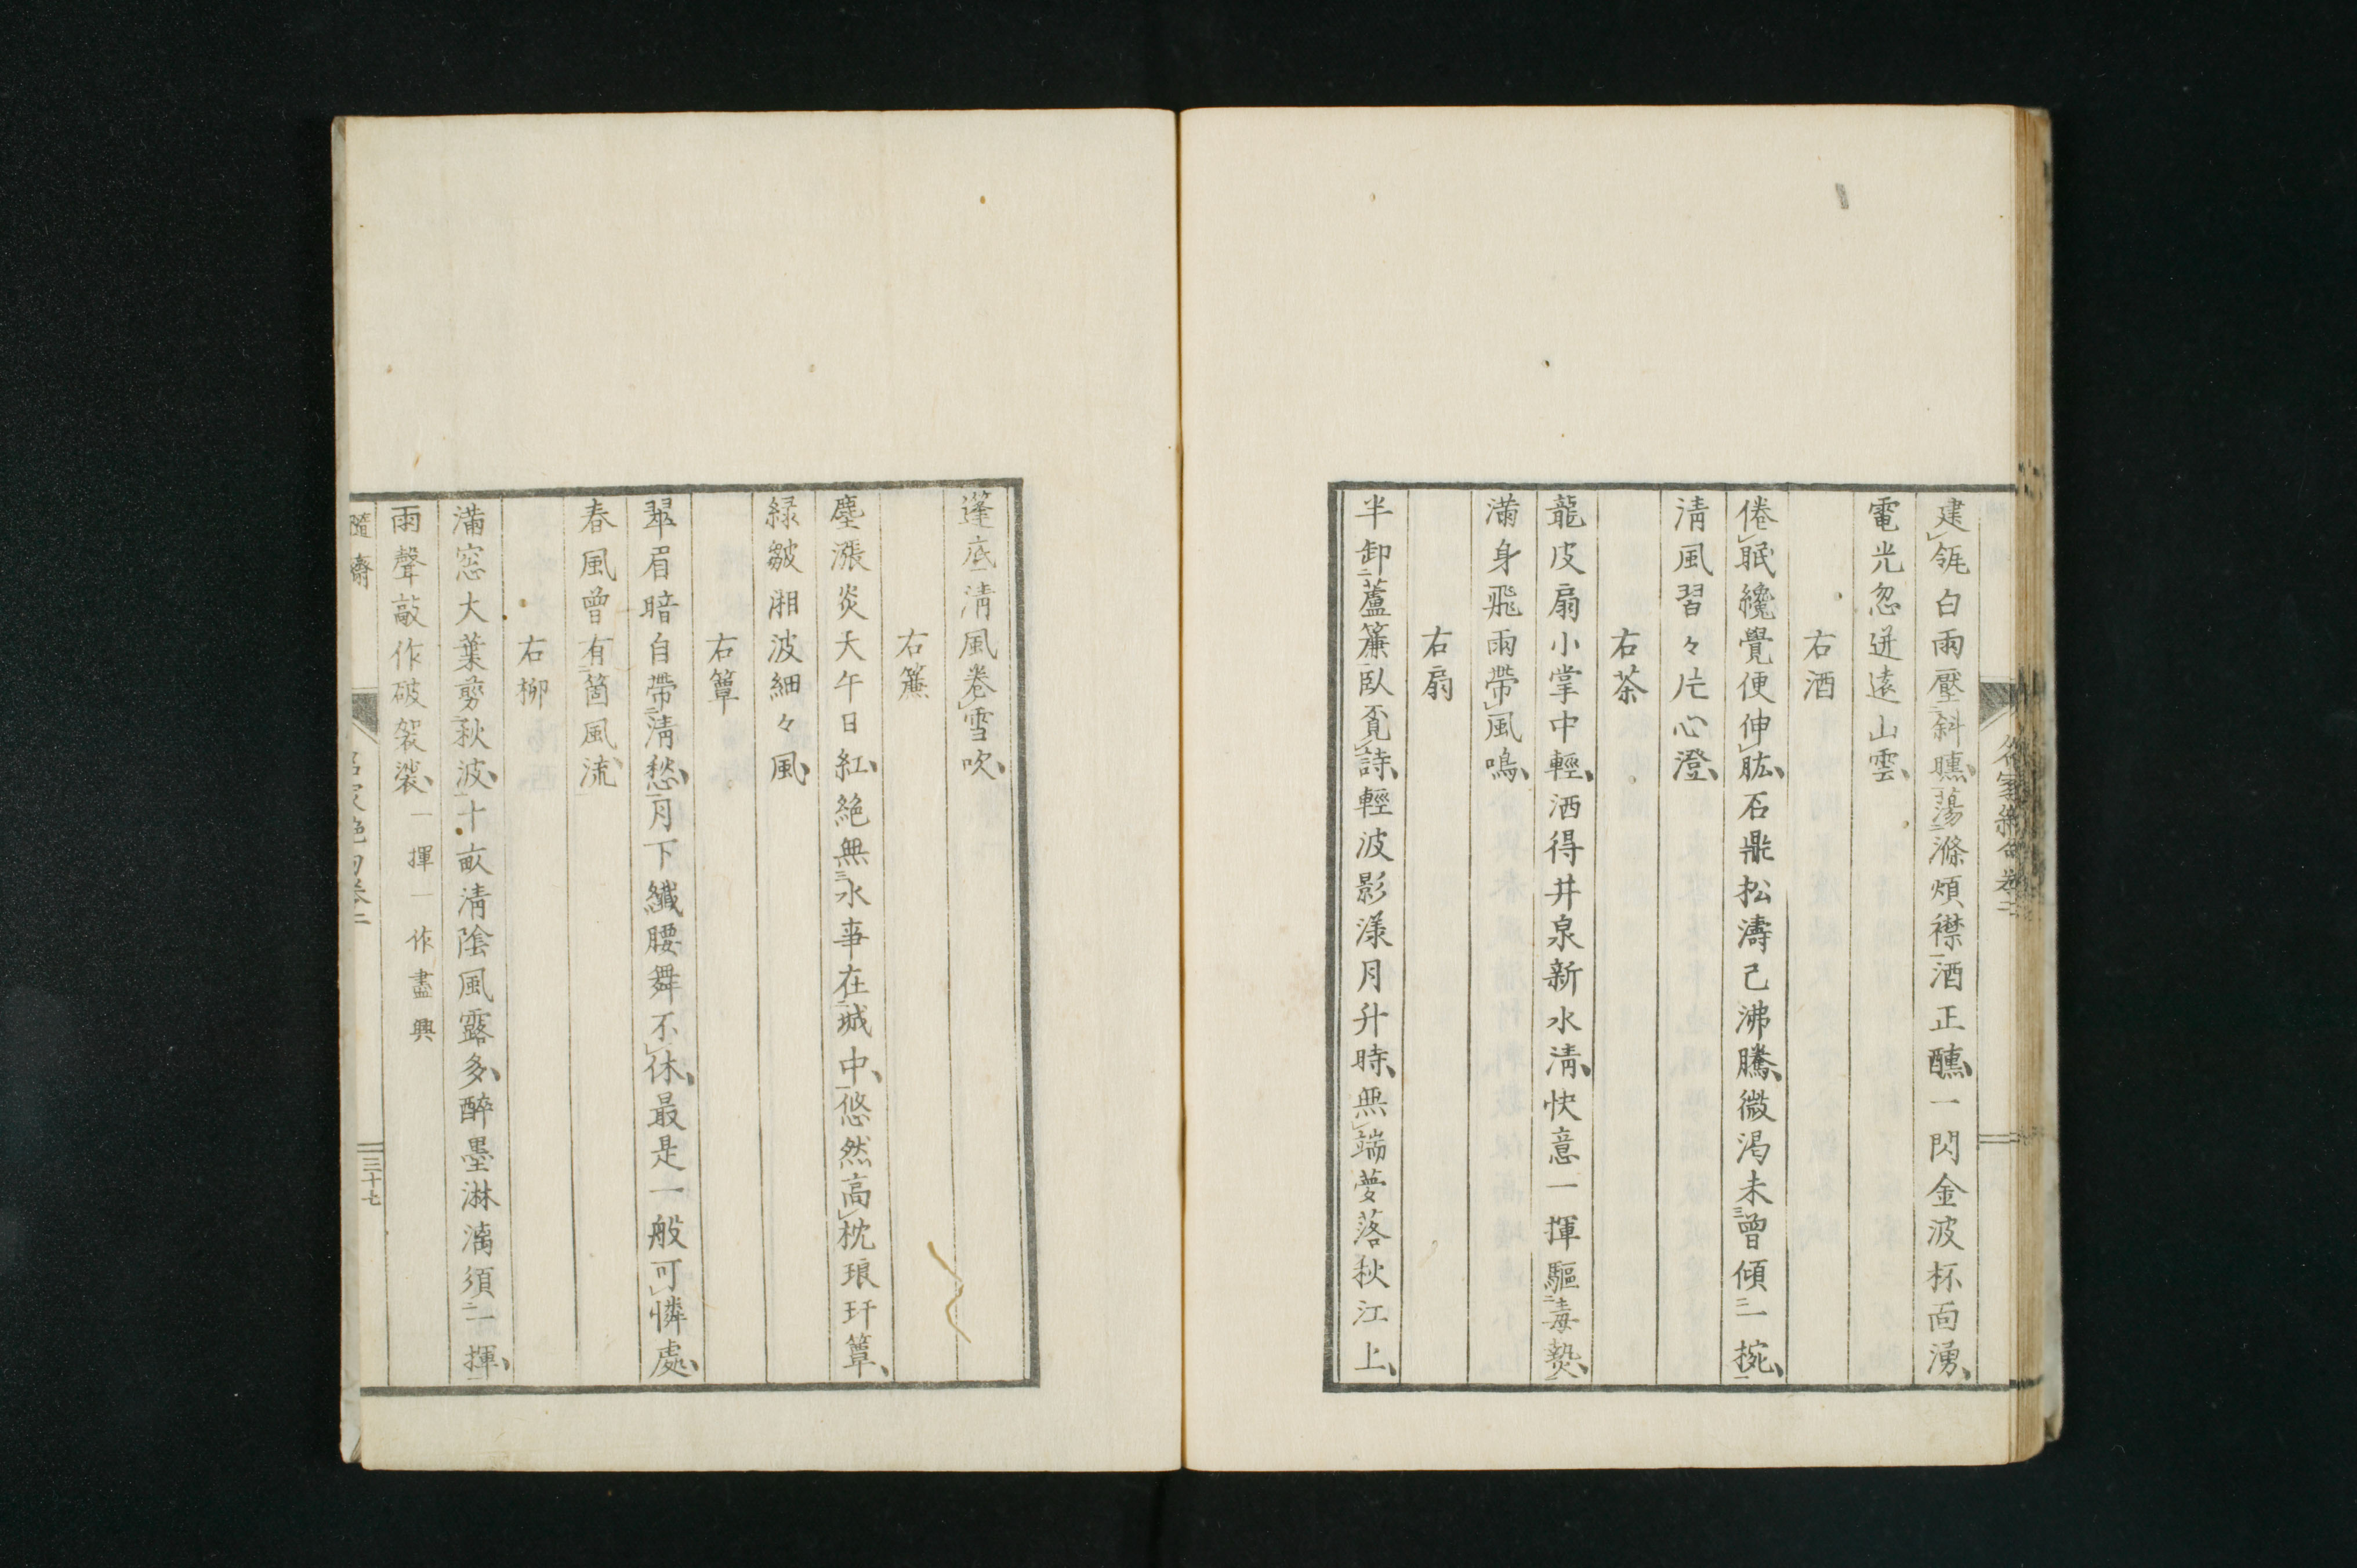 建瓴白雨壓斜曛蕩滌煩襟酒正醺一閃金波杯面湧
電光忽迸遠山雲
右酒
倦眠纔覺便伸肱石鼎松濤已沸騰微渴未曾傾一捥
清風習々片心澄
右茶
龍皮扇小掌中輕洒得井泉新水清快意一揮驅毒𤍠
滿身飛雨帶風鳴
右扇
半卸蘆簾臥覓詩輕波影漾月升時無端夢落秋江上
蓬底清風卷雪吹
右簾
塵漲炎天午日紅絶無水事在城中悠然高枕琅玕簟
緑皺湘波細々風
右簟
翠眉暗自帶清愁月下纎腰舞不休最是一般可憐處
春風曾有箇風流
右柳
滿窓大葉剪秋波十畝清陰風露多醉墨淋漓須一揮
雨聲敲作破袈裟 一揮一作盡興
隨齋
名家絶句卷二
三十七